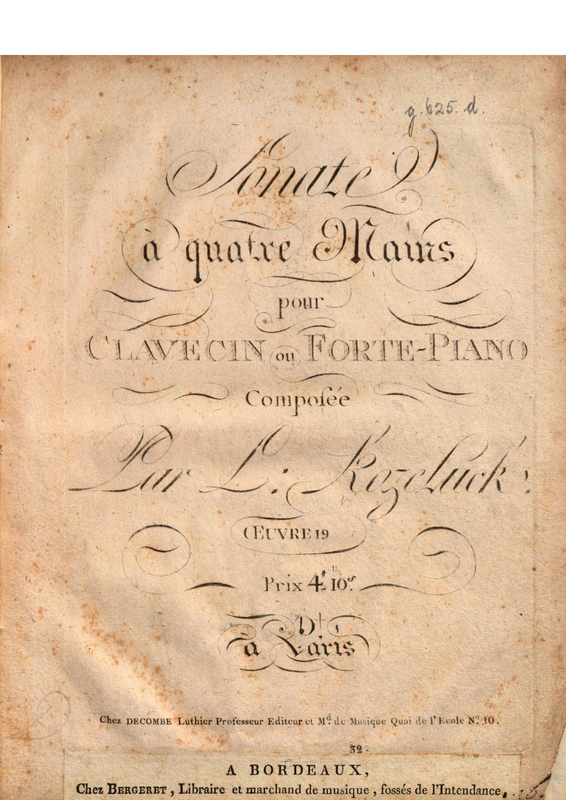 g. 625. d.
Sonate
à quatre Mains
pour
CLAVECIN ou FORTE-PIANO
Composée
Par L: Kozeluck.
ŒUVRE 19
Prix 4# 10s
à Paris
Chez DECOMBE Luthier Professeur Editeur et Md. de Musique Quai de l'Ecole No. 10.
32.
A BORDEAUX,
Chez BERGERET, Libraire et marchand de musique, fossés de l'Intendance,